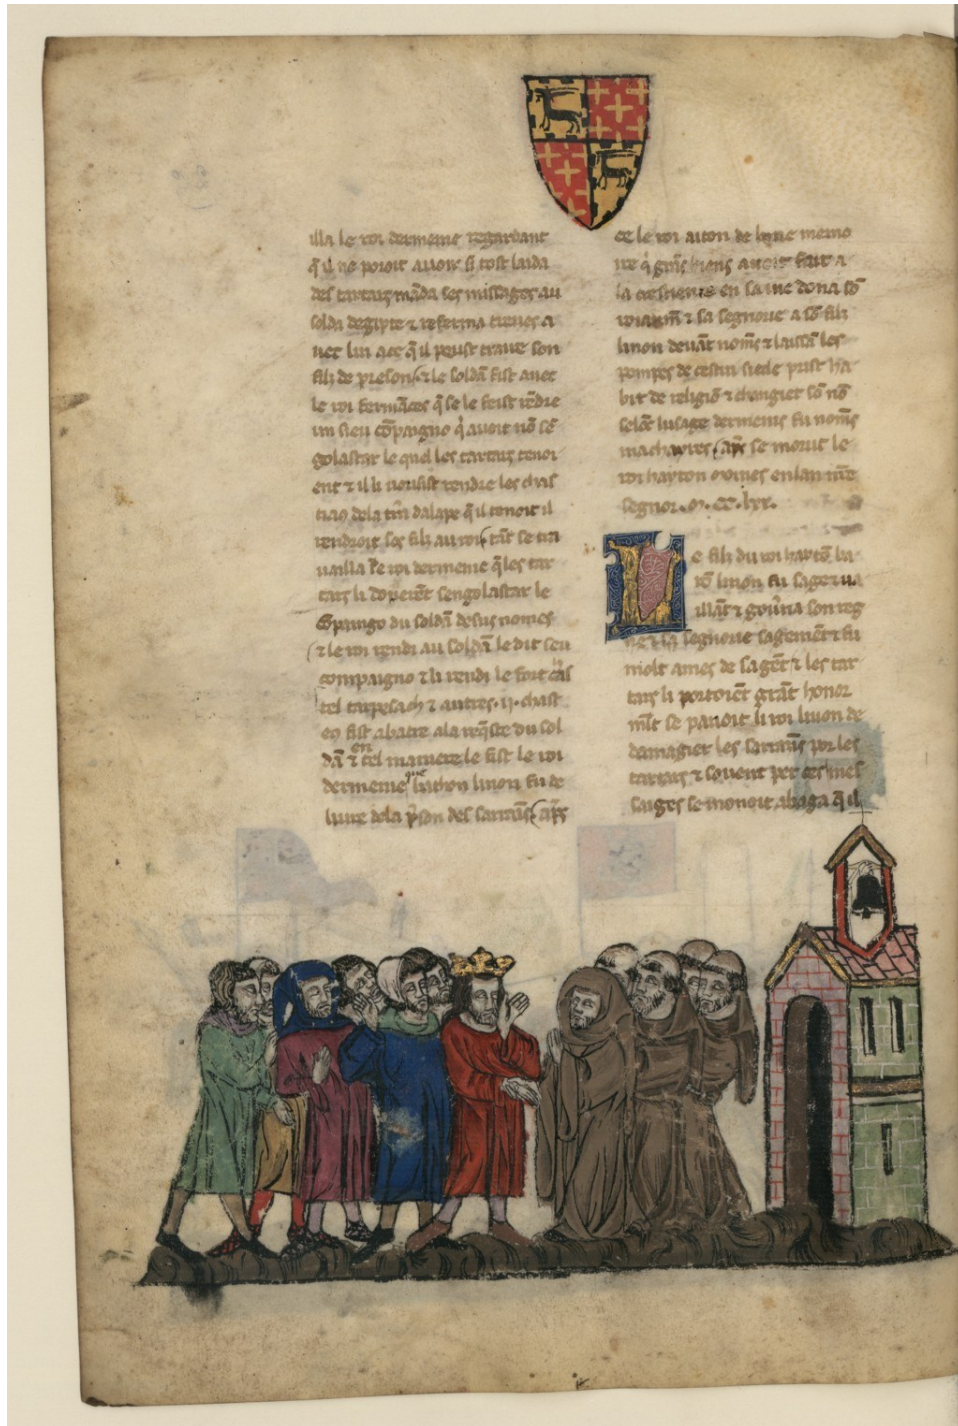 illa le roi dermenie regardant
q̄ il ne poroit auoir si tost laida
des tartars māda ses messages au
soldā degipte ⁊ referma trieues a
uec lui ace q̄ il peust traire son
filz de preson ⁊ le soldā fist auec
le roi fermāces q̄ se le feist rēdre
un sieu cōpaigno q̄ auoit nō sē
golascar le quel les tartars tenoi
ent ⁊ il li uousist rendre les chas
tiaus dela t̄re dalape q̄ il tenoit il
rendroit ses filz au roi tāt se tra
uailla le roi dermenie q̄ les tar
tars li donerēt sengolascar le
cōpaingo du soldā desus nomes
⁊ le roi rendi au soldā le dit seu
compaigno ⁊ li rendi le fort cas
tel trepesach ⁊ autres .ij. chast
eus fist abatre ala reqste du sol
dā ⁊ en tel maniere le fist le roi
dermenie que bairon liuon fu de
liure dela p̄son des sarrazīs apres
ce le roi aiton de bone memo
ire q̄ grās biens auoit fait a
la crestiente en sa uie dona sō
roiaum̄ ⁊ sa segnorie a sō filz
liuon deuāt nomes ⁊ laissāt les
pompes de cestui siecle prist ha
bit de religiō ⁊ changiet sō nō
selōc lusage dermenis fu nomes
machaires apres se morut le
roi hayton ermines en lan n̄re
segnor .m. cc. lxx.
Le filz du roi haytō ba
rō liuon fu sage ⁊ ua
illāt ⁊ gou̓na son reg
ne ⁊ sa segnorie sagemēt ⁊ fu
molt ames de sa gēt ⁊ les tar
tars li portoiēt grāt honor
m̄lt se penoit li roi liuon de
damagier les sarrazīs por les
tartars ⁊ souent per ces mes
sages semonoit abaga q̄ il